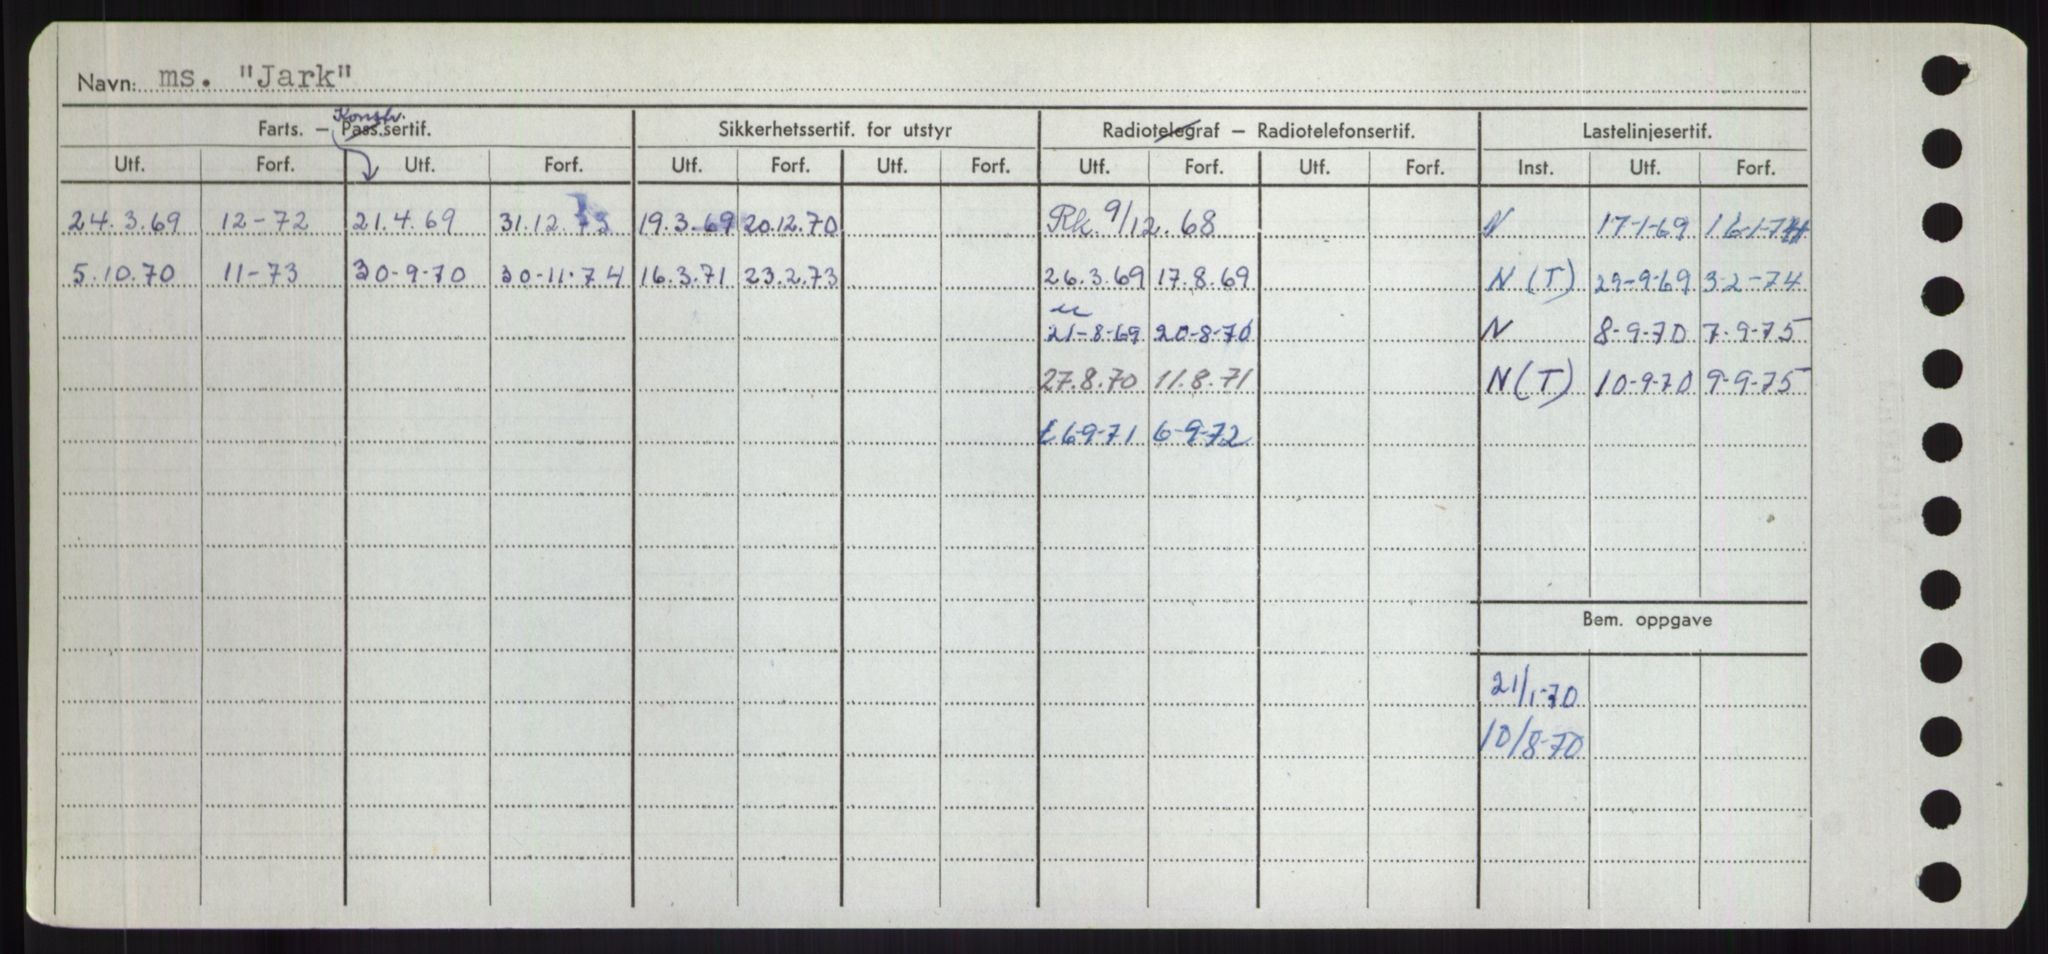 Navn: ms. "Jark"
Konstr.
Farts. – Pass.sertif. Sikkerhetssertif. for utstyr Radiotelegraf – Radiotelefonsertif. Lastelinjesertif.
Utf. Forf. Utf. Forf. Utf. Forf. Utf. Forf. Utf. Forf. Utf. Forf. Inst. Utf. Forf.
24.3.69 12-72 21.4.69 31.12.73 19.3.69 20.12.70 Rk. 9/12.68 N 17-1-69 16-1-74
5.10.70 11-73 30-9-70 30-11-74 16.3.71 23.2.73 26.3.69 17.8.69 N (T) 29-9-69 3-2-74
21-8-69 20-8-70 N 8-9-70 7-9-75
27.8.70 11.8.71 N (T) 10-9-70 9-9-75
6-9-71 6-9-72
Bem. oppgave
21/1-70
10/8-70